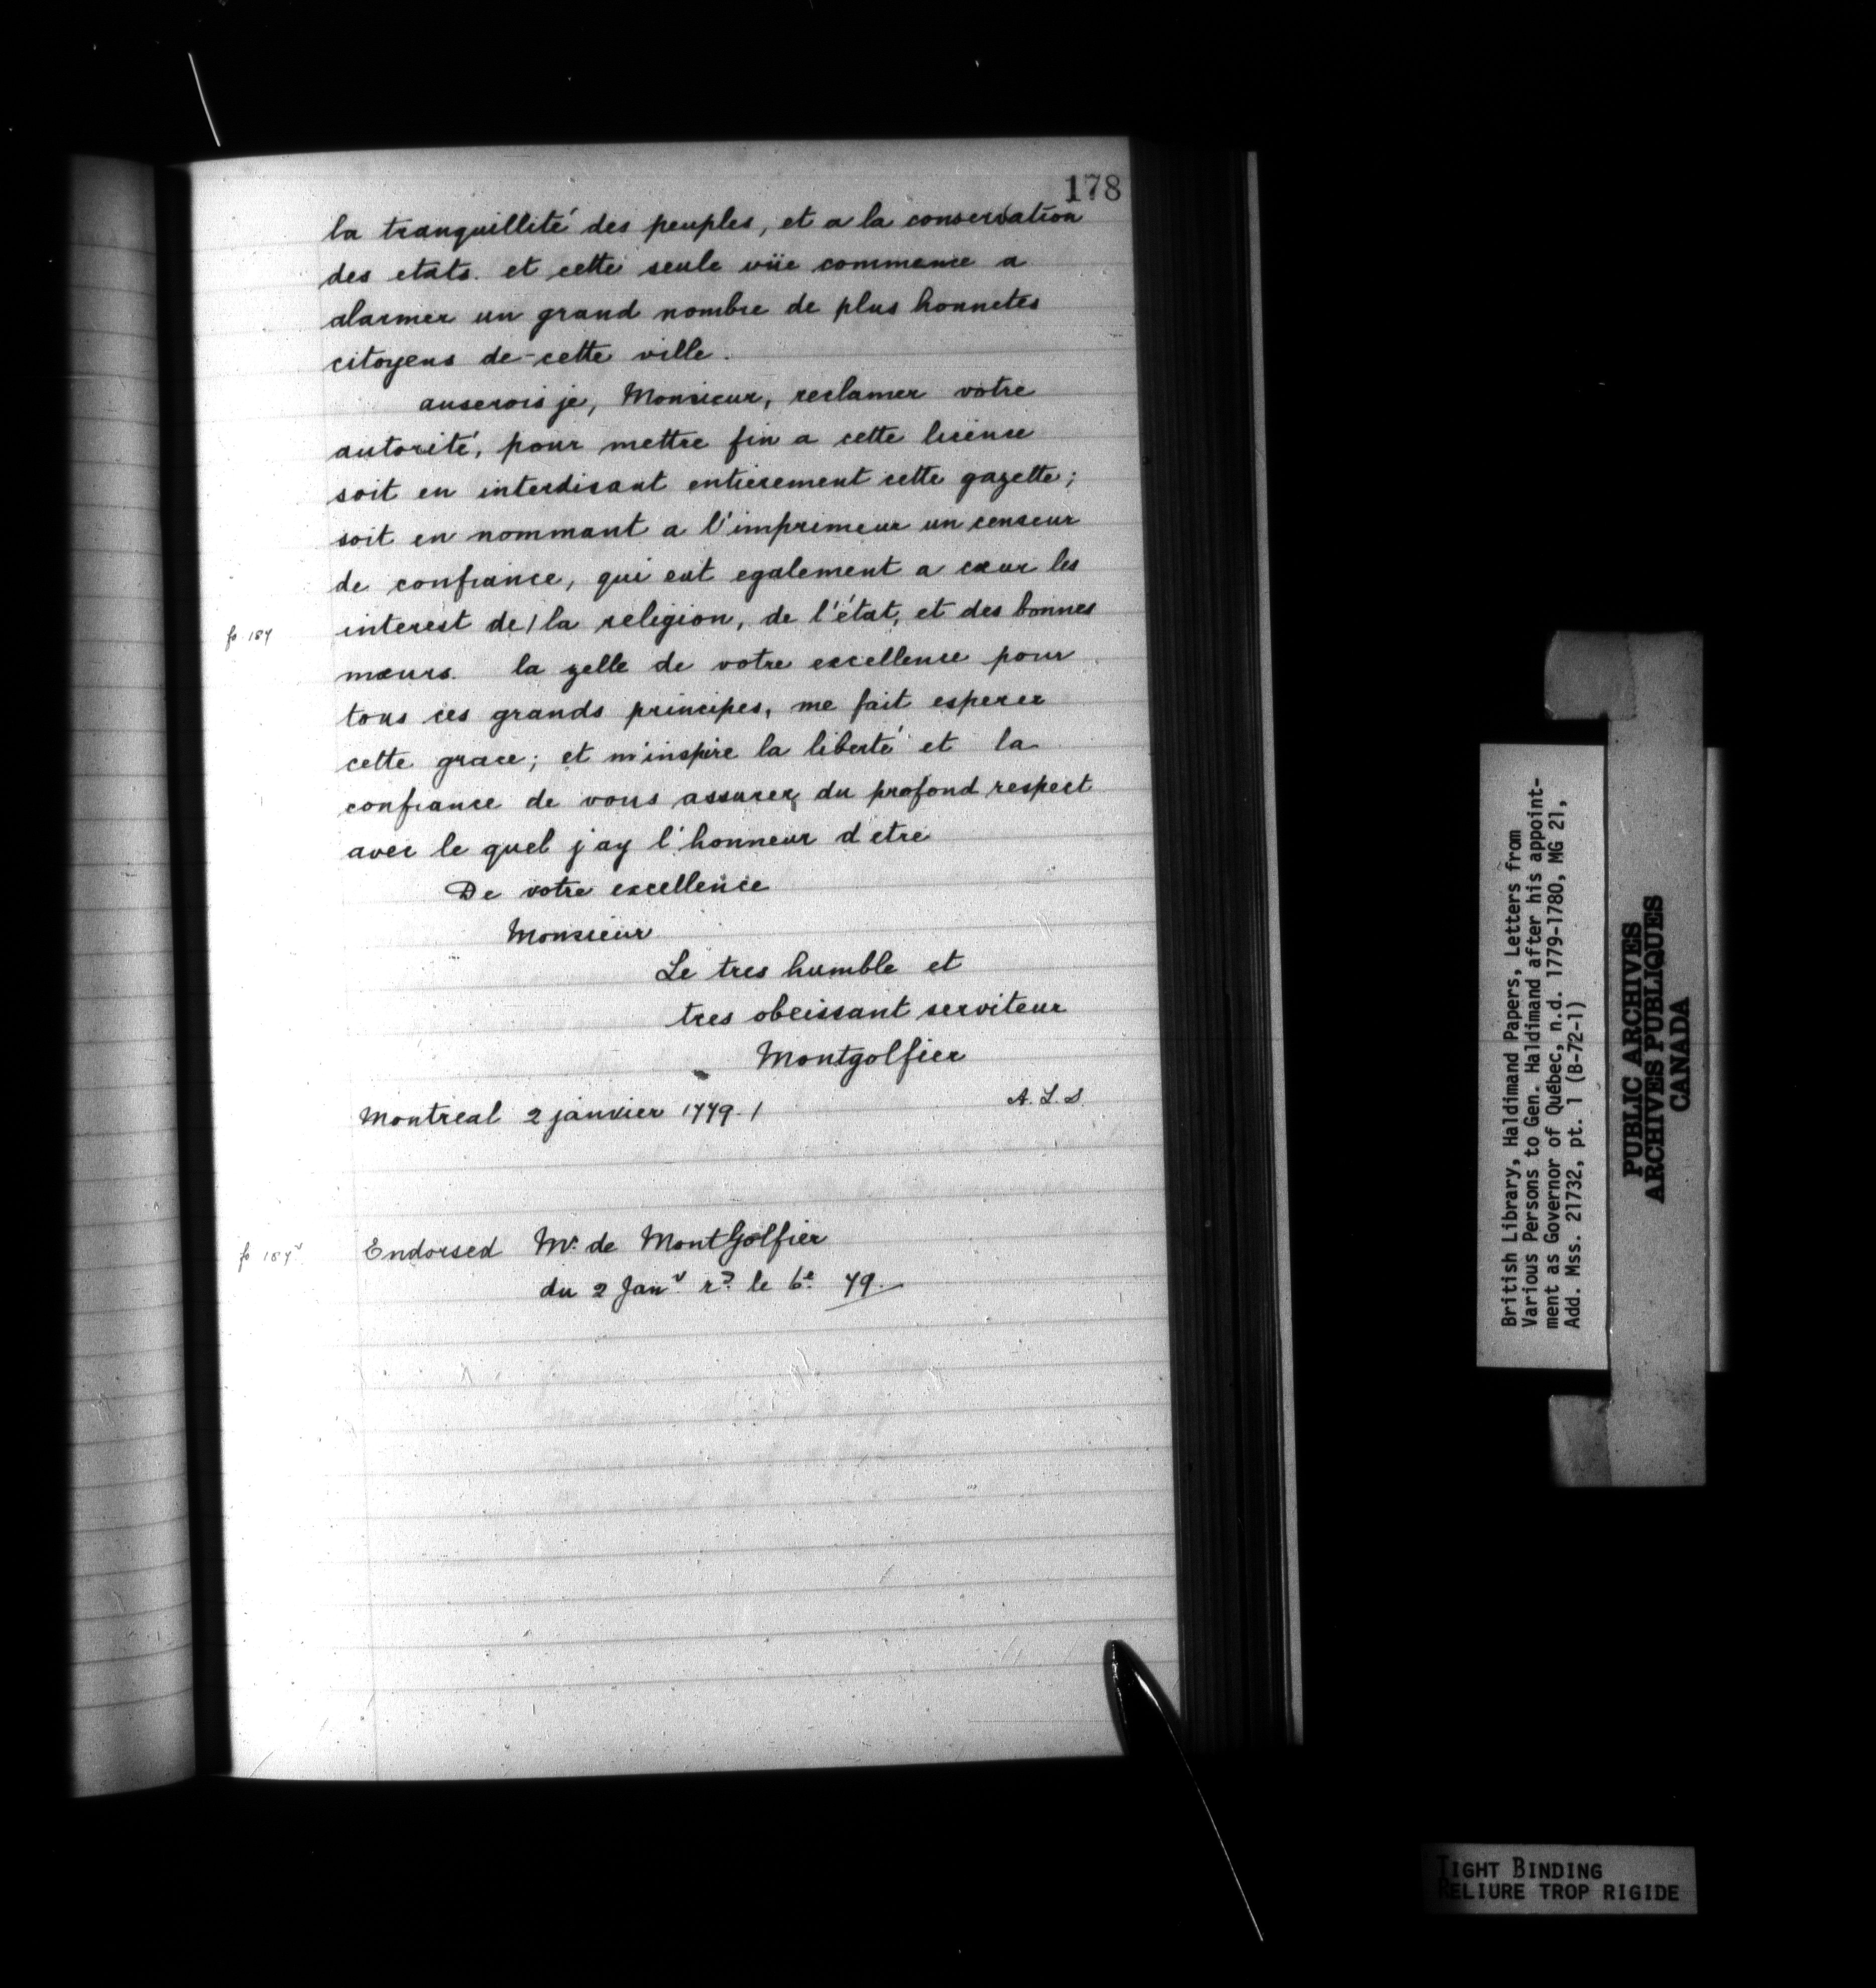 178
la tranquillité des peuples, et a la conservation
des etats. et cette seule vüe commence a
alarmer un grand nombre de plus honnetes
citoyens de-cette ville.
auserois je, Monsieur, reclamer votre
autorité, pour mettre fin a cette license
soit en interdisant entierement cette gazette;
soit en nommant a l'imprimeur un censeur
de confiance, qui eut egalement a cœur les
fo. 187
interest de/la religion, de l'état, et des bonnes
mœurs. la zelle de votre excellence pour
tous ces grands principes, me fait esperer
cette grace; et m'inspire la liberté et la
confiance de vous assurer, du profond respect
avec le quel j'ay l'honneur d etre
De votre excellence
Monsieur
Le tres humble et
tres obeissant serviteur
Montgolfier
A. L. S.
Montreal 2 janvier 1779. /
fo 187v
Endorsed Mr. de MontGolfier
du 2 Janv. r? le 6e. 79.
British Library, Haldimand Papers, Letters from
Various Persons to Gen. Haldimand after his appoint-
ment as Governor of Québec, n.d. 1779-1780, MG 21,
Add. Mss. 21732, pt. 1 (B-72-1)
PUBLIC ARCHIVES
ARCHIVES PUBLIQUES
CANADA
TIGHT BINDING
RELIURE TROP RIGIDE